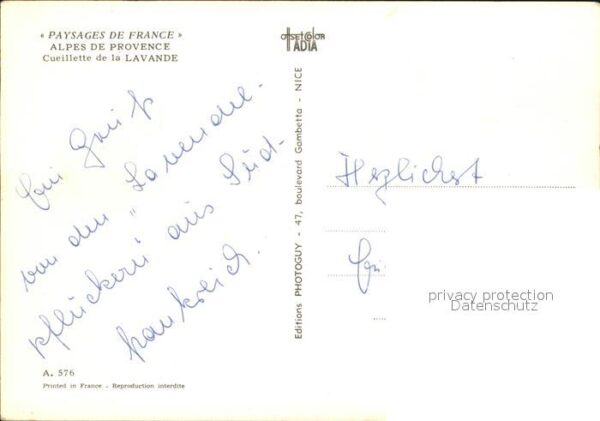 « PAYSAGES DE FRANCE »
ALPES DE PROVENCE
Cueillette de la LAVANDE
Ein Gruß
von den „Lavendel-
pflückern" aus Süd-
frankreich.
A. 576
Printed in France - Reproduction interdite
OFFSETCOLOR
TADIA
Editions PHOTOGUY - 47, boulevard Gambetta - NICE
Herzlichst
privacy protection
Datenschutz